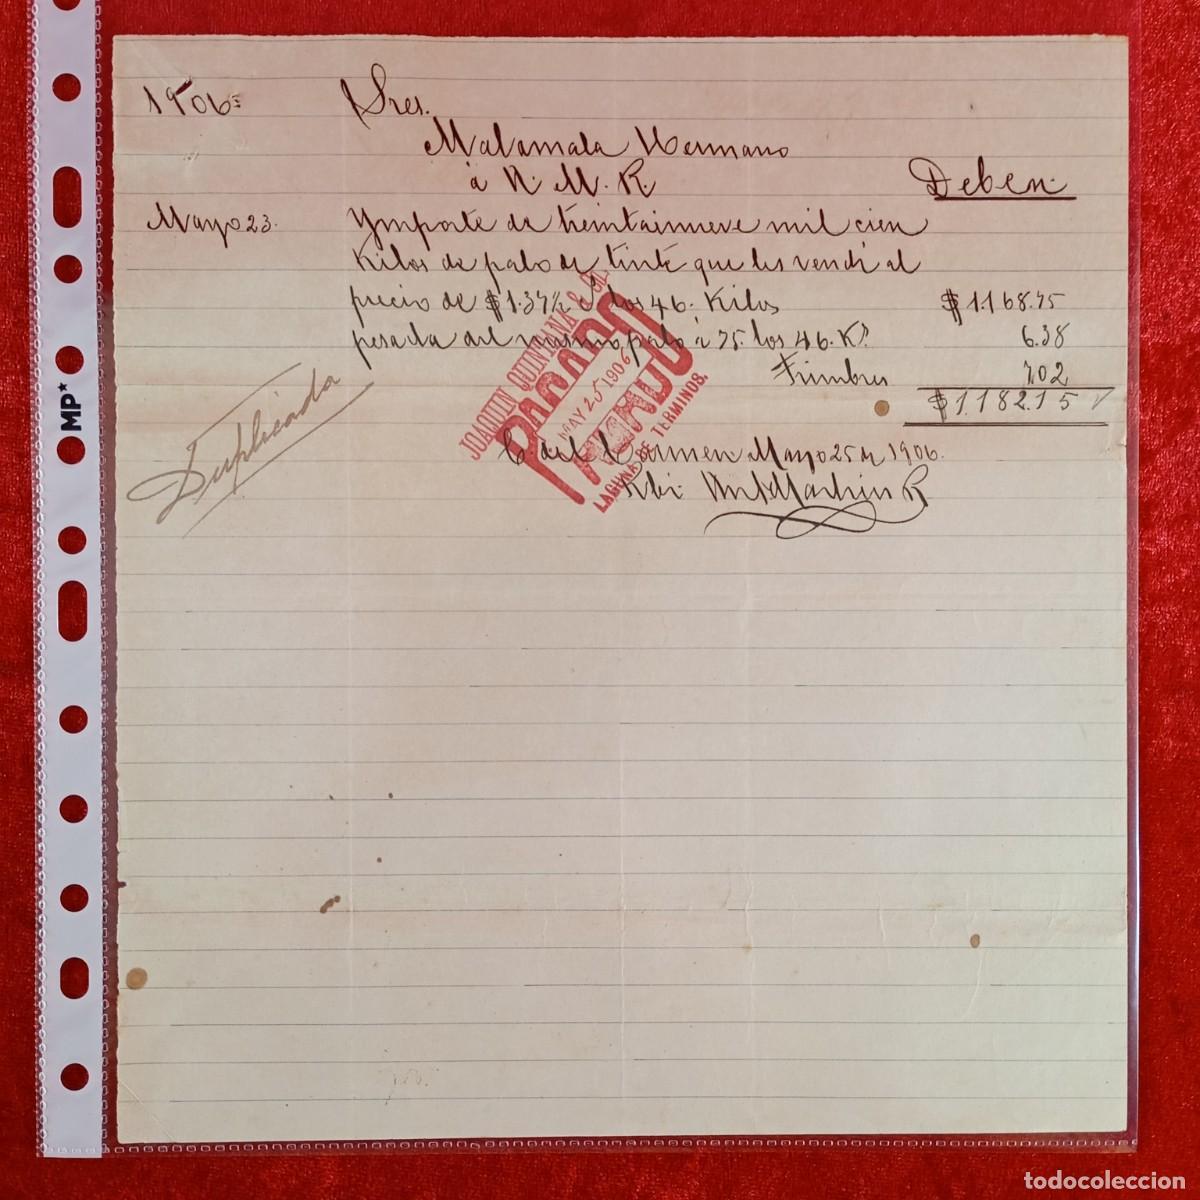 1906
Sres.
Malamala Hermano
á N. M. R.
Deben
Mayo 23. Ymporte de treintainueve mil cien
Kilos de palo de tinte que les vendí al
precio de $1.37½ los 46. Kilos $1.168.75
pesada del mismo palo á 75. los 46. Ks. 6.38
Timbres 7.02
$1.182.15
Duplicada
C. del Carmen Mayo 25 de 1906.
JOAQUIN QUINTANA
PAGADO
MAY 25 1906
LAGUNA DE TERMINOS.
MP*
todocoleccion